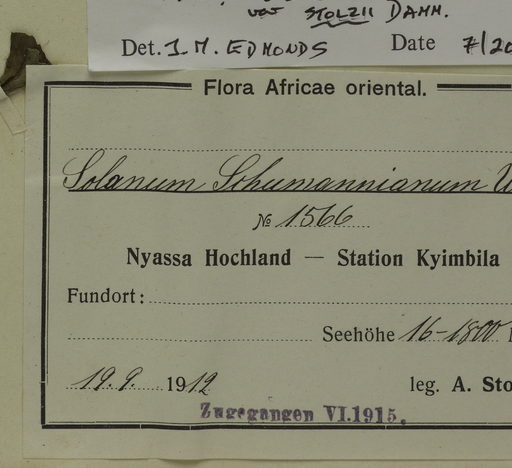 var STOLZII DAMM.
Det. J. M. EDMONDS Date 7/20
Flora Africae oriental.
Solanum Schumannianum
№ 1566
Nyassa Hochland — Station Kyimbila
Fundort:
Seehöhe 16-1800
19. 9. 1912 leg. A. Sto
Zugegangen VI.1915.